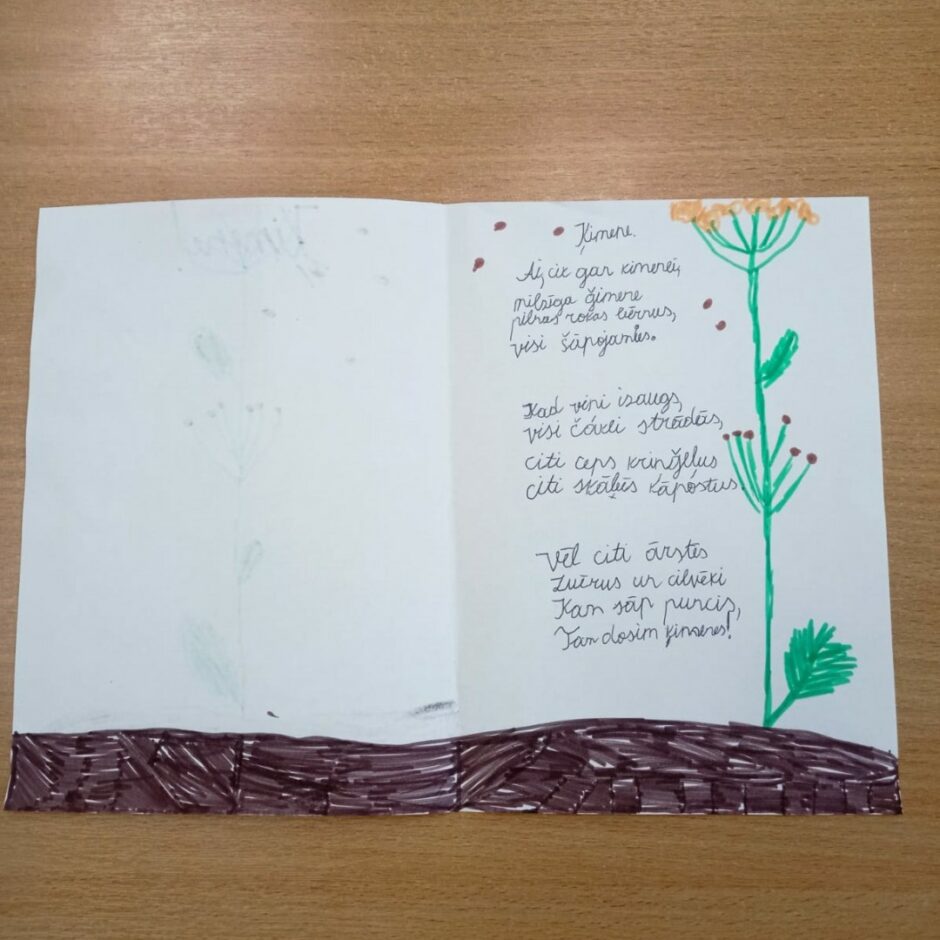 Ķimene.
Ai, cik gar ķimenei,
milzīga ģimene
pilnas rokas bērnus,
visi šāpojamies.
Kad viņi izaugs,
visi čākli strādās,
citi ceps kriņģeļus
citi skābēs kāpostus.
Vēl citi ārstēs
zvērus un cilvēki
Kam sāp puncis,
Tam dosim ķimenes!